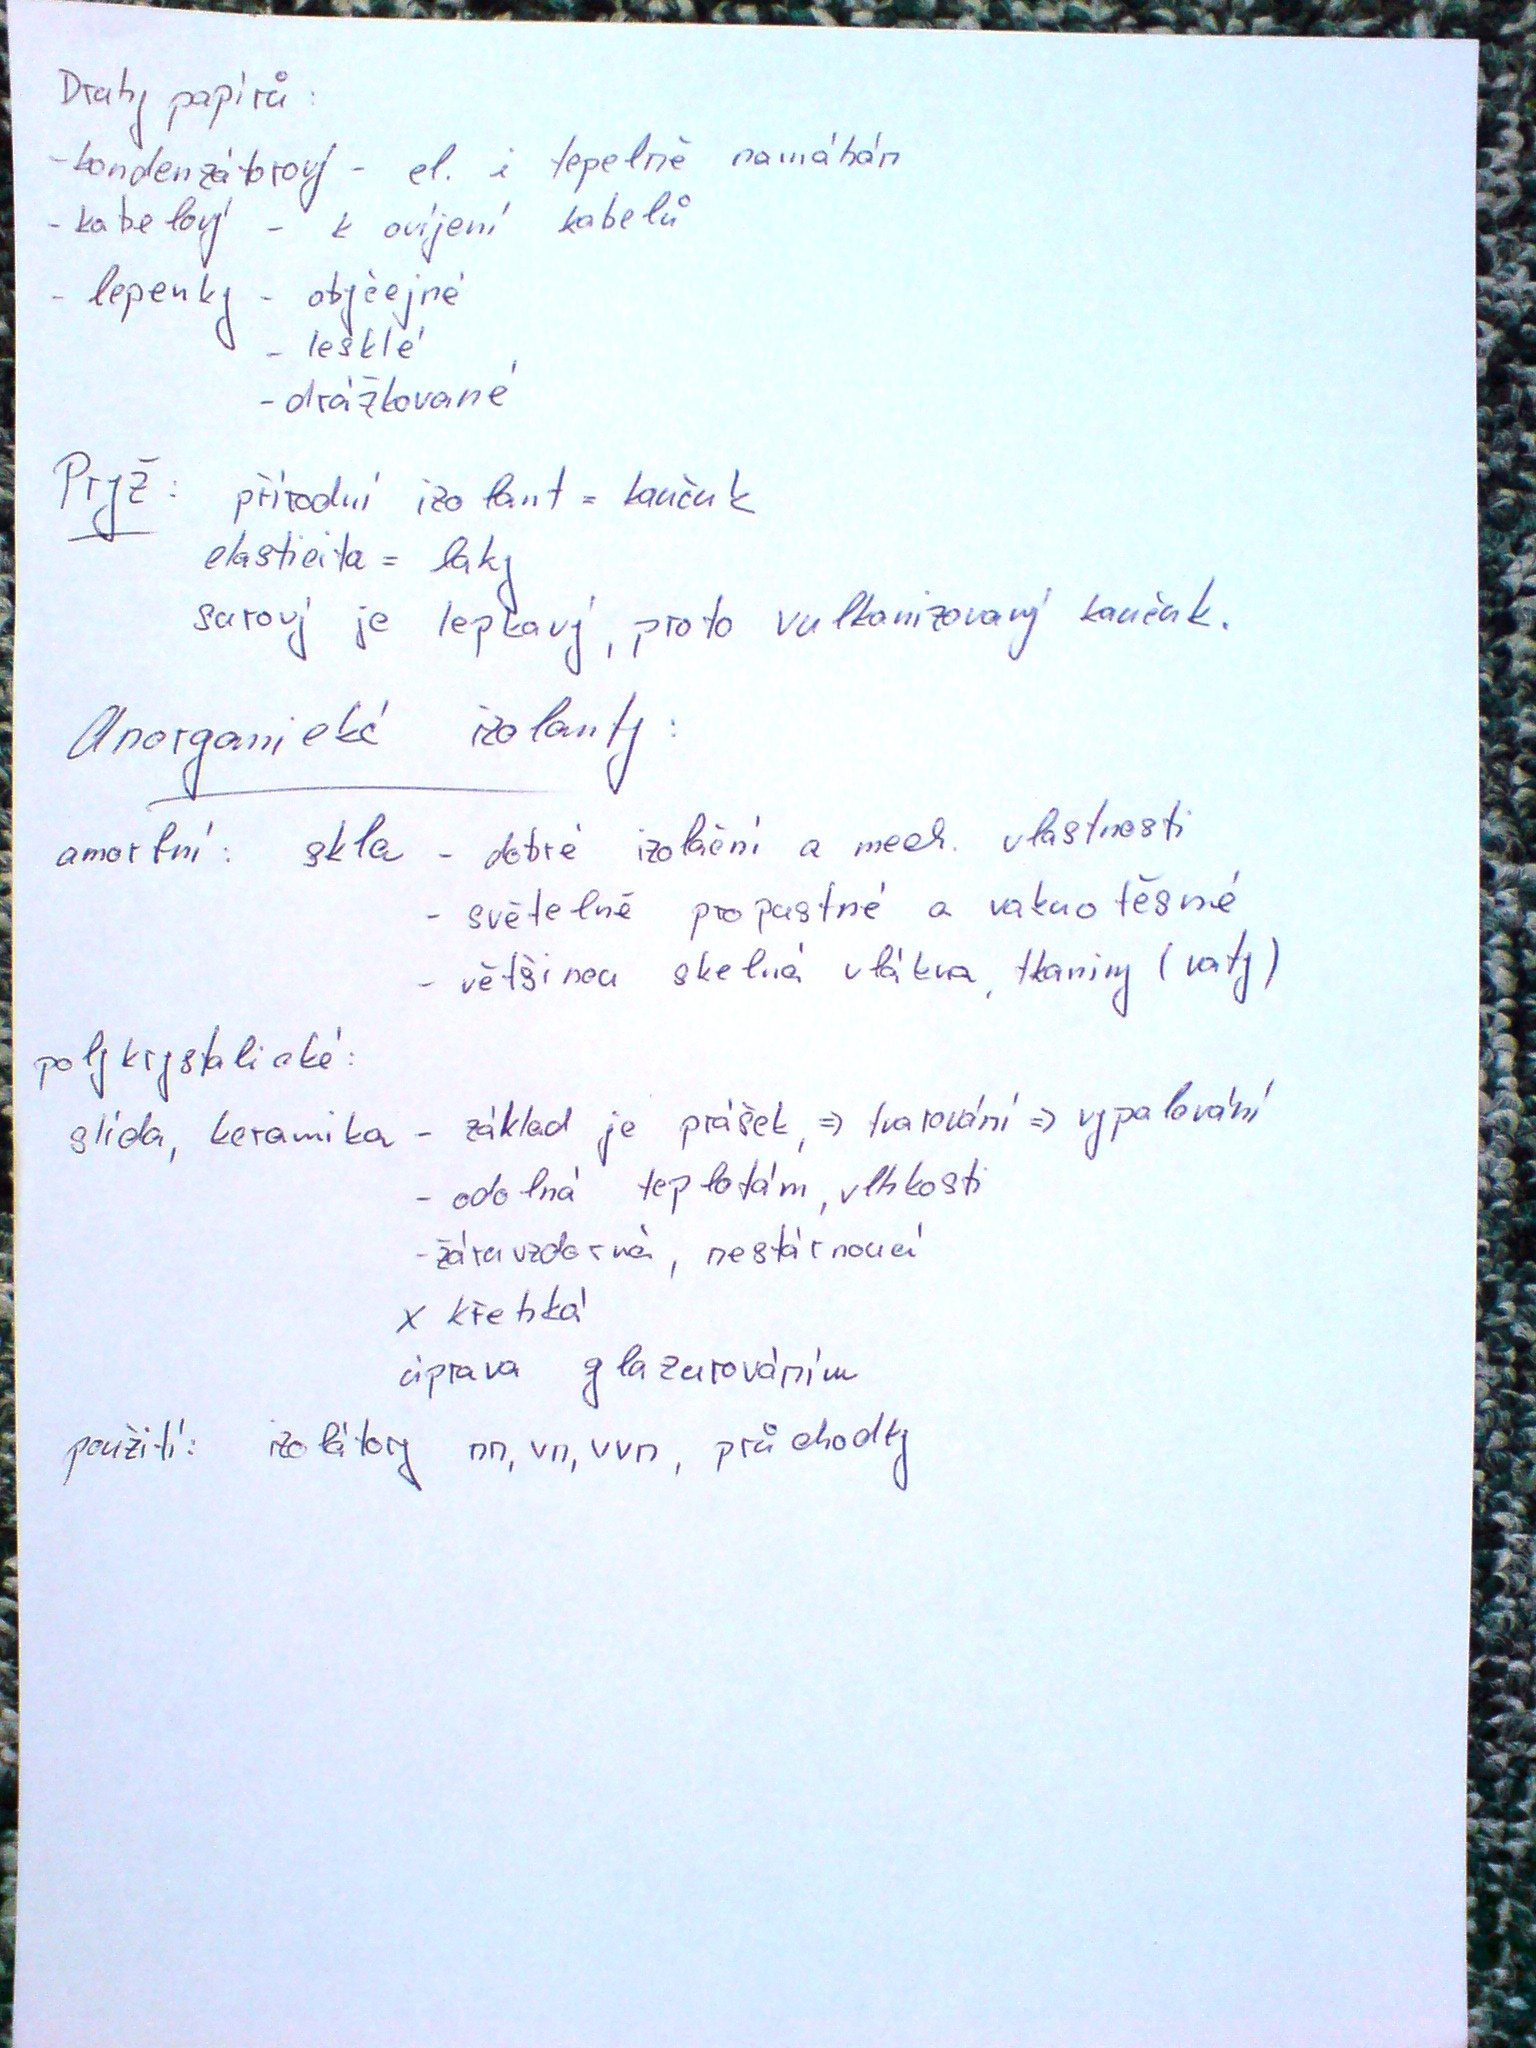 Druhy papírů:
-kondenzátorový - el. i tepelně namáhán
-kabelový - k ovíjení kabelů
- lepenky - obyčejné
- lesklé
-drážkované
Pryž: přírodní izolant = kaučuk
elasticita = laky
surový je lepkavý, proto vulkanizovaný kaučuk.
Anorganické izolanty:
amorfní: skla - dobré izolační a mech. vlastnosti
- světelně propustné a vakuotěsné
- většinou skelná vlákna, tkaniny (vaty)
polykrystalické:
slída, keramika - základ je prášek, => tvarování => vypalování
- odolná teplotám, vlhkosti
-žáruvzdorná, nestárnoucí
x křehká
úprava glazurováním
použití: izolátory nn, vn, vvn, průchodky